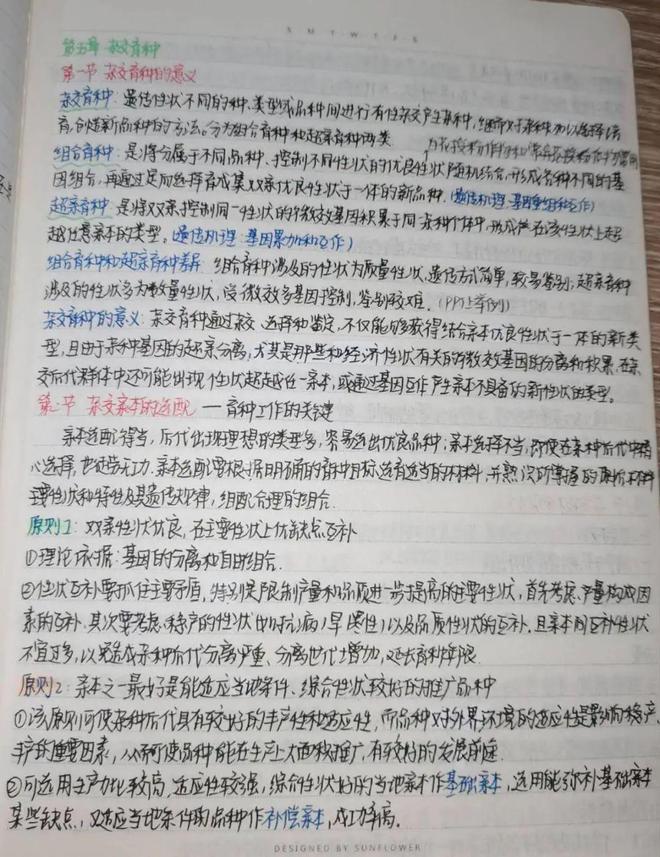 S M T W T F S
第五章 杂交育种
第一节 杂交育种的意义
杂交育种：遗传性状不同的种、类型或品种间进行有性杂交产生杂种，继而对杂种加以选择培
育，创造新品种的方法。分为组合育种和超亲育种两类
组合育种：是将分属于不同品种、控制不同性状的优良性状随机结合，形成各种不同的基
因组合，再通过定向选择育成集双亲优良性状于一体的新品种。（遗传机理：基因重组和互作）
超亲育种 是将双亲控制同一性状的不同微效基因积累于同一杂种个体中，形成在该性状上超
越任意亲本的类型。遗传机理：基因累加和互作）
组合育种和超亲育种差异：组合育种涉及的性状为质量性状，遗传方式简单，较易鉴别；超亲育种
涉及的性状多为数量性状，受微效多基因控制，鉴别较难。（P95上举例）
杂交育种的意义：杂交育种通过杂交、选择和鉴定，不仅能够获得结合亲本优良性状于一体的新类
型，且由于杂种基因的超亲分离，尤其是那些和经济性状有关的微效基因的分离和积累，在杂
交后代群体中还可能出现性状超越任一亲本，或通过基因互作产生亲本不具备的新性状的类型。
第二节 杂交亲本的选配 — 育种工作的关键
亲本选配得当，后代出现理想的类型多，容易选出优良品种；亲本选择不当，即使在杂种后代中精
心选择，也徒劳无功。亲本选配要根据明确的育种目标选有适当的原材料，并熟识所掌握的原始材料
主要性状和特性及其遗传规律，组配合理的组合。
原则1：双亲性状优良，在主要性状上优缺点互补
①理论依据：基因的分离和自由组合。
②性状互补要抓住主要矛盾，特别是限制产量和品质进一步提高的主要性状，首先考虑产量构成因
素的互补，其次要考虑稳产的性状（如抗病、旱性）以及品质性状的互补，且亲本间互补性状
不宜过多，以免造成杂种后代分离严重、分离世代增加，延长育种年限。
原则2：亲本之一最好是能适应当地条件、综合性状较好的推广品种
①该原则可使杂种后代具有较好的丰产性和适应性，而品种对外界环境的适应性是影响稳产、
丰产的重要因素，从而可使品种能在生产上大面积推广，有较好的发展前途。
②可选用生产力比较高，适应性较强，综合性状好的当地亲本作基础亲本，选用能弥补基础亲本
某些缺点，又适应当地条件的品种作补偿亲本，成功率高。
DESIGNED BY SUNFLOWER